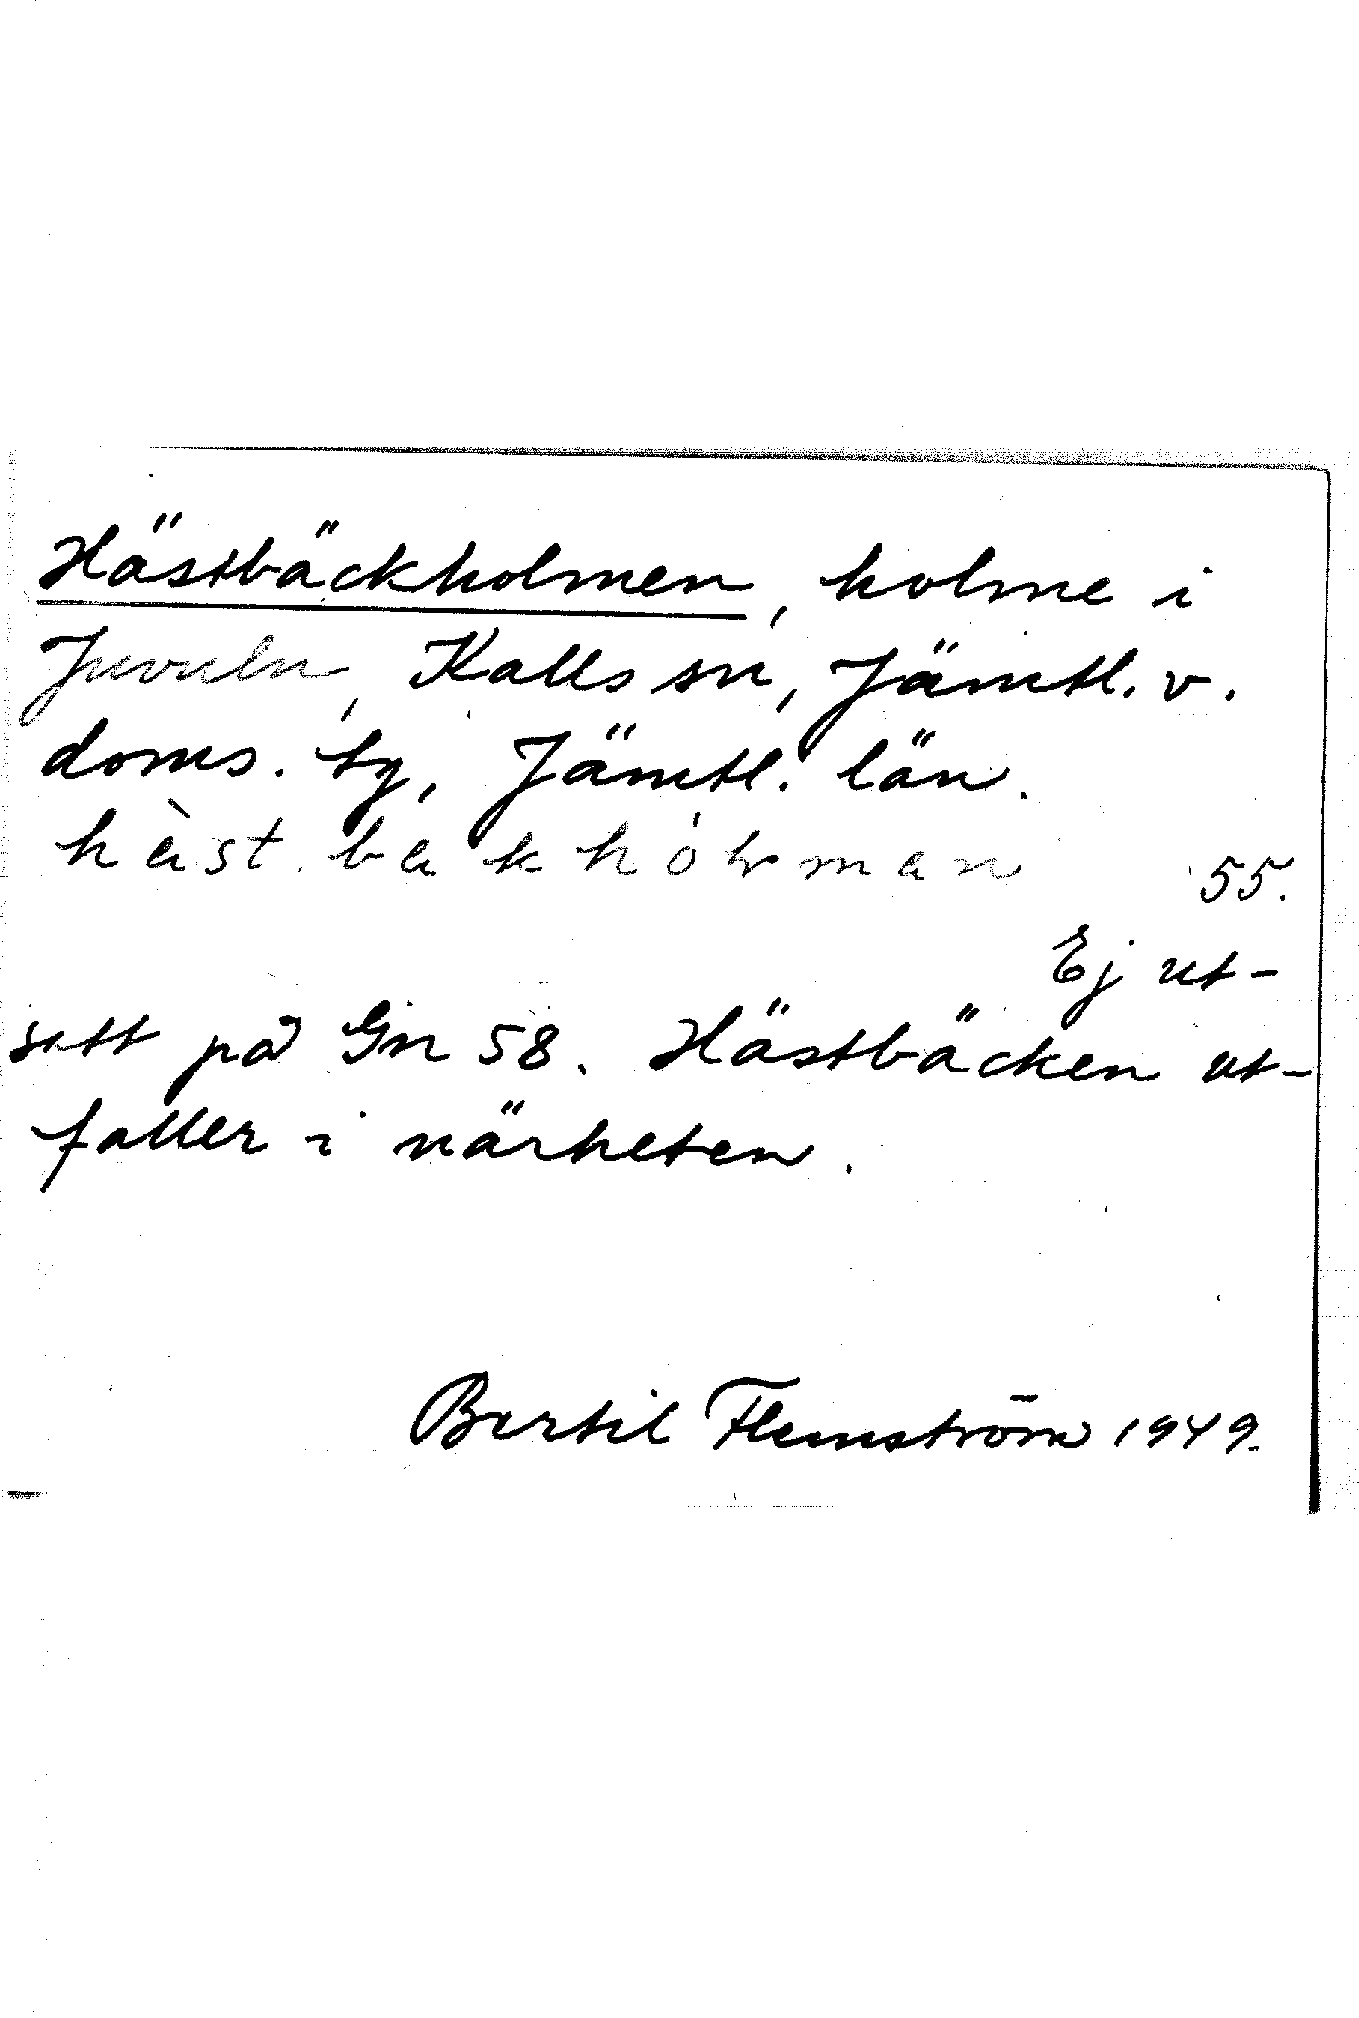 Hästbäckholmen, holme i
Juvuln, Kalls sn, Jämtl. v.
doms. tg, Jämtl. län.
hàst bakhólman 55.
Ej ut-
satt på Gn 58. Hästbäcken ut-
faller i närheten.
Bertil Flemström 1949.